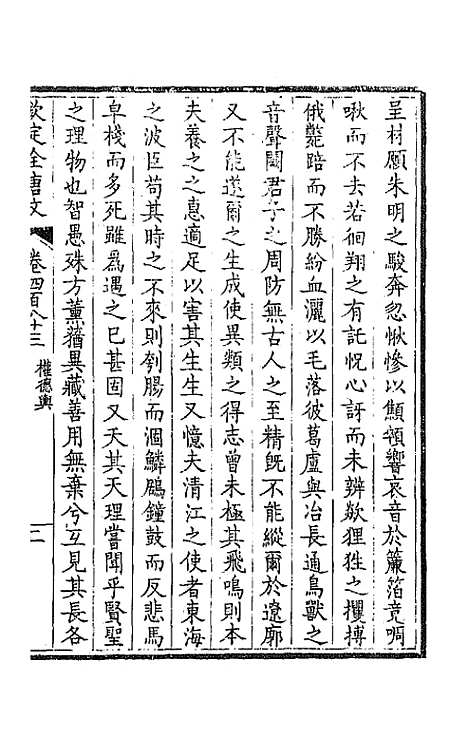 呈材願朱明之駿奔忽愀慘以顦顇響哀音於簾箔竟啁
啾而不去若徊翔之有託怳心訝而未辨欻狸狌之攫搏
俄斃踣而不勝紛血灑以毛落彼葛盧與冶長通鳥獸之
音聲闕君子之周防無古人之至精旣不能縱爾於遼廓
又不能遂爾之生成使異類之得志曾未極其飛鳴則本
夫養之之惠適足以害其生生又憶夫清江之使者東海
之波臣苟其時之不來則刳腸而涸鱗鷗鐘鼓而反悲馬
皁棧而多死雖爲遇之已甚固又夭其天理嘗聞乎賢聖
之理物也智愚殊方薰蕕異藏善用無棄兮互見其長各
欽定全唐文 卷四百八十三 權德輿 二